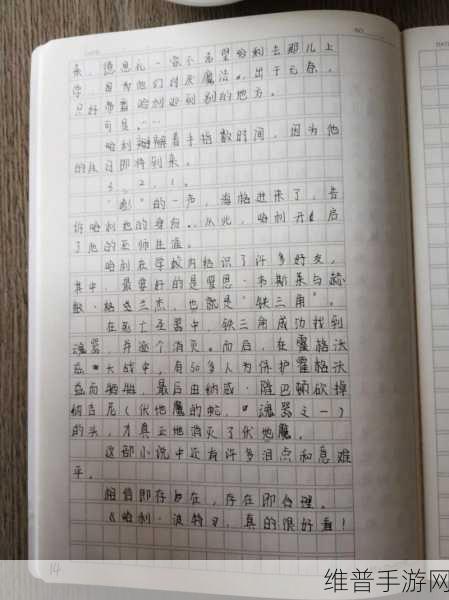 来，德思礼一家不希望哈利去那儿上
学，因为他们讨厌魔法。出于无奈，
只好带着哈利逃到别的地方。
可是……
哈利掰着手指数时间，因为他
的生日即将到来。
3，2，1。
“彭”的一声，海格进来了，告
诉哈利他的身份。从此，哈利开启
了他的巫师生涯。
哈利在学校内结识了许多好友，
其中，最要好的是罗恩·韦斯莱与赫
敏·格兰杰，也就是“铁三角”。
在死亡圣器中，铁三角成功找到
魂器，并逐个消灭。而后，在霍格沃
兹大战中，有50多人为保护霍格沃
兹而牺牲，最后由纳威·隆巴顿砍掉
纳吉尼（伏地魔的蛇，魂器之一）
的头，才真正地消灭了伏地魔。
这部小说中还有许多泪点和意难
平。
相信即存在，存在即合理。
《哈利·波特》，真的很好看！
14
维普手游网